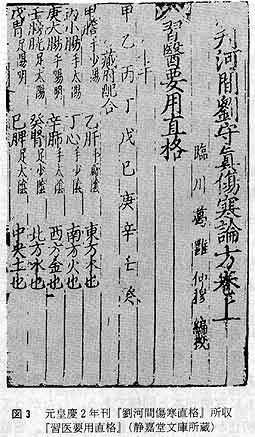 河間劉守眞傷寒論方卷上
臨川 葛雍 仲穆 編校
習醫要用直格
十干
甲乙丙丁戊己庚辛壬癸
藏府配合
甲膽足少陽 乙肝足厥陰 東方木也
丙小腸手太陽 丁心手少陰 南方火也
庚大腸手陽明 辛肺手太陰 西方金也
壬膀胱足太陽 癸腎足少陰 北方水也
戊胃足陽明 己脾足太陰 中央土也
図3 元皇慶2年刊『劉河間傷寒直格』所収
『習医要用直格』(静嘉堂文庫所蔵)